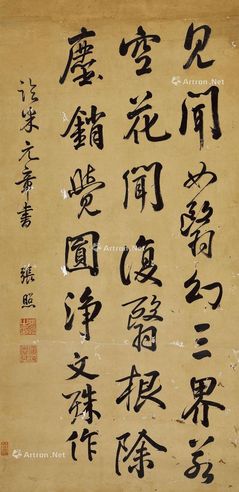 見聞如翳幻三界若
空花聞復翳根除
塵銷覺圓淨文殊作
臨米元章書 張照
Artron.Net
Artron.Net
Artron.Net
Artron.Net